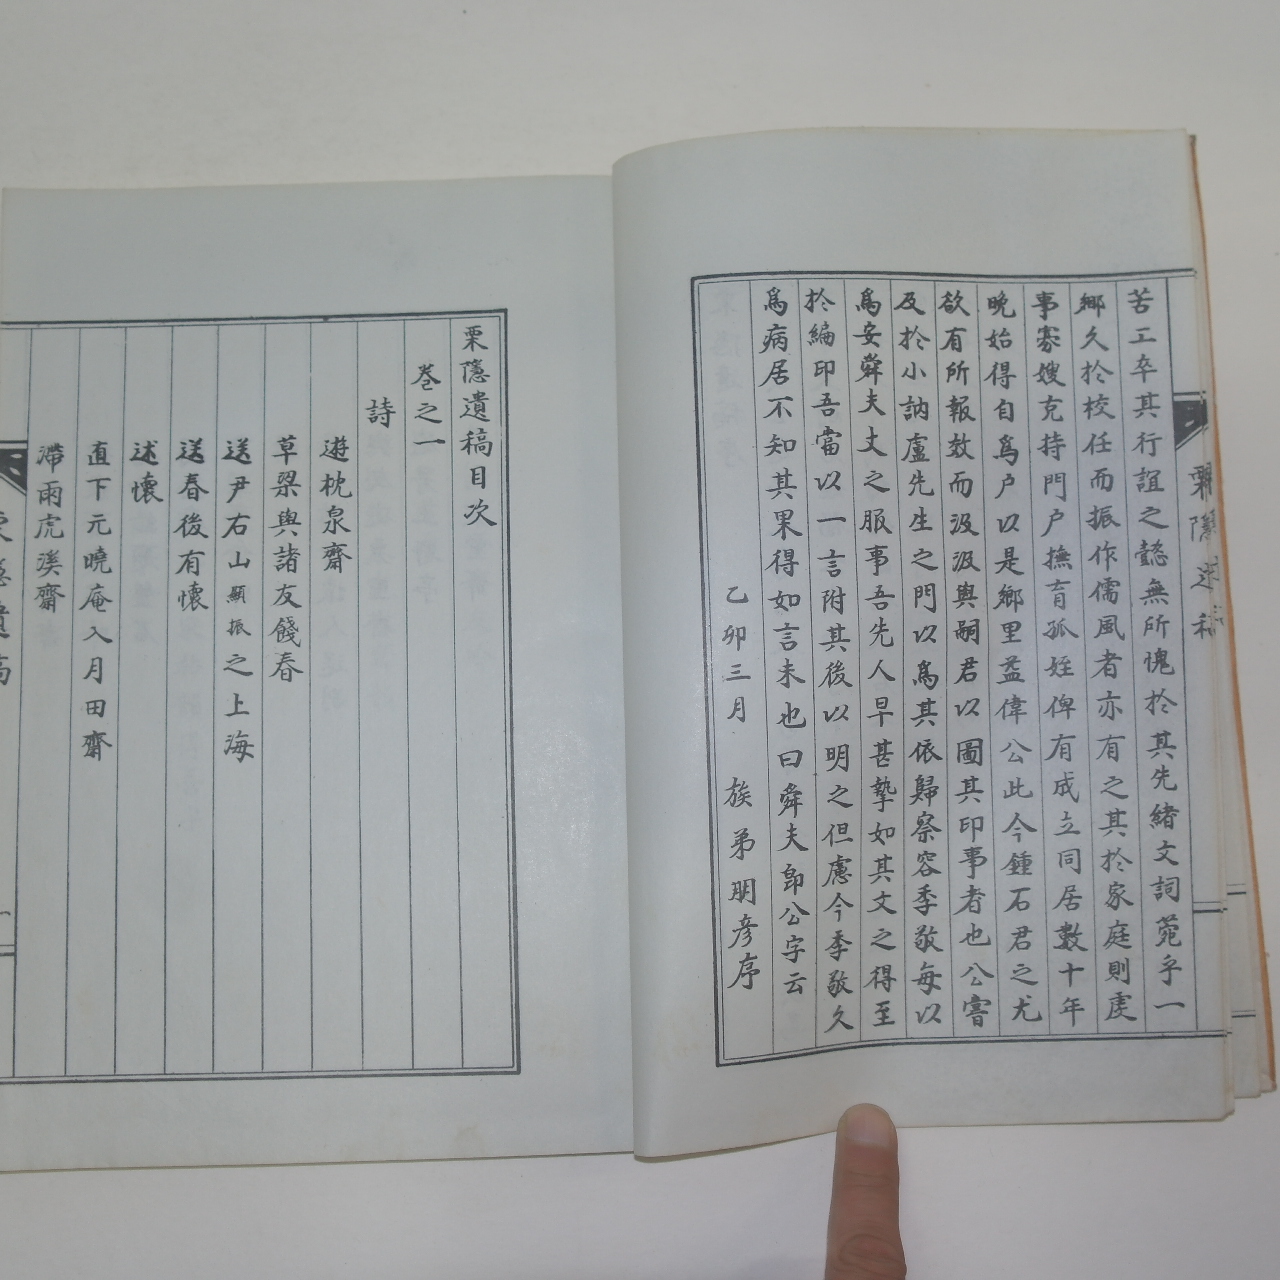 栗隱遺稿
苦工卒其行誼之懿無所愧於其先緖文詞菀乎一
鄕久於校任而振作儒風者亦有之其於家庭則虔
事寡嫂克持門户撫育孤姪俾有成立同居數十年
晩始得自爲户以是鄕里益偉公此今鍾石君之尤
欲有所報效而汲汲與嗣君以圖其印事者也公嘗
及於小訥盧先生之門以爲其依歸察容季敬每以
爲安舜夫丈之服事吾先人早甚摯如其文之得至
於編印吾當以一言附其後以明之但慮今季敬久
爲病居不知其果得如言未也曰舜夫卽公字云
乙卯三月 族弟明彦序
栗隱遺稿目次
卷之一
詩
遊枕泉齋
草梁與諸友餞春
送尹右山顯振之上海
送春後有懷
述懷
直下元曉庵入月田齋
滯雨虎溪齋